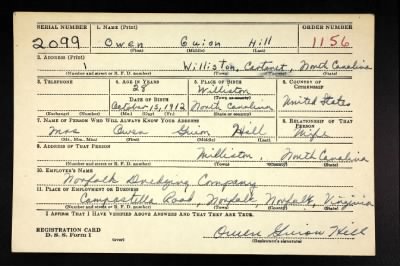 SERIAL NUMBER 1. NAME (Print) ORDER NUMBER
2099 Owen Guion Hill 1156
(First) (Middle) (Last)
2. ADDRESS (Print)
1 Williston, Carteret, North Carolina
(Number and street or R. F. D. number) (Town) (County) (State)
3. TELEPHONE 4. AGE IN YEARS 5. PLACE OF BIRTH 6. COUNTRY OF CITIZENSHIP
28 Williston
(Town or county)
DATE OF BIRTH
October 15, 1912 North Carolina United States
(Exchange) (Number) (Mo.) (Day) (Yr.) (State or country)
7. NAME OF PERSON WHO WILL ALWAYS KNOW YOUR ADDRESS 8. RELATIONSHIP OF THAT PERSON
Mrs Owen Guion Hill Wife
(Mr., Mrs., Miss) (First) (Middle) (Last)
9. ADDRESS OF THAT PERSON
Williston, North Carolina
(Number and street or R. F. D. number) (Town) (County) (State)
10. EMPLOYER'S NAME
Norfolk Dredging Company
11. PLACE OF EMPLOYMENT OR BUSINESS
Campostella Road, Norfolk, Norfolk, Virginia
(Number and street or R. F. D. number) (Town) (County) (State)
I AFFIRM THAT I HAVE VERIFIED ABOVE ANSWERS AND THAT THEY ARE TRUE.
REGISTRATION CARD
D. S. S. Form 1 (over) Owen Guion Hill
(Registrant's signature)